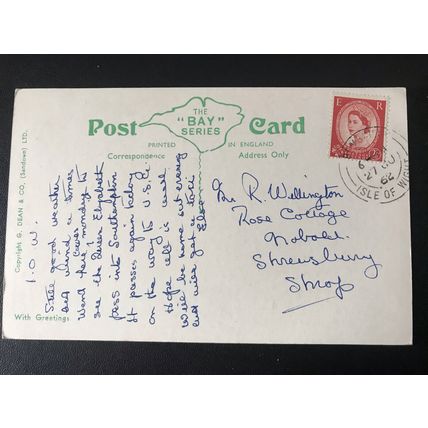 THE
"BAY"
SERIES
Post Card
PRINTED IN ENGLAND
Correspondence Address Only
Copyright G. DEAN & CO., (Sandown) LTD.
With Greetings
I.O.W.
Still good weather
but wind a times
Went here monday to
Cowes
see the Queen Elizabeth
pass into Southampton
It passes again today
on the way to U.S.A.
Hope all is well
We'll be home wed evening
but will get a taxi
Elsie
E R
ISLE OF WIGHT
R. Wellington
Rose Cottage
Shrewsbury
Shrop